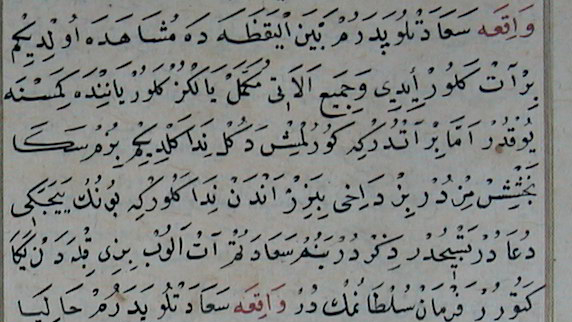 واقعه سعادتلو پدرم بين اليقظه ده مشاهده اولديكم
بر آت كلور ايدى و جميع الاتى مكمل يالكز كلور ياننده كمسنه
يوقدر اما بر آتدر كه كورلمش دكل ندا كلديكم بزم سكا
بز داخى بنرز اندن ندا كلور كه بونك
دعادر تسبيحدر ذكردر بنم سعادتم آت الوب بزى قبله دن يكا
كتورر فرمان سلطانمكدر واقعه سعادتلو پدرم حاليا